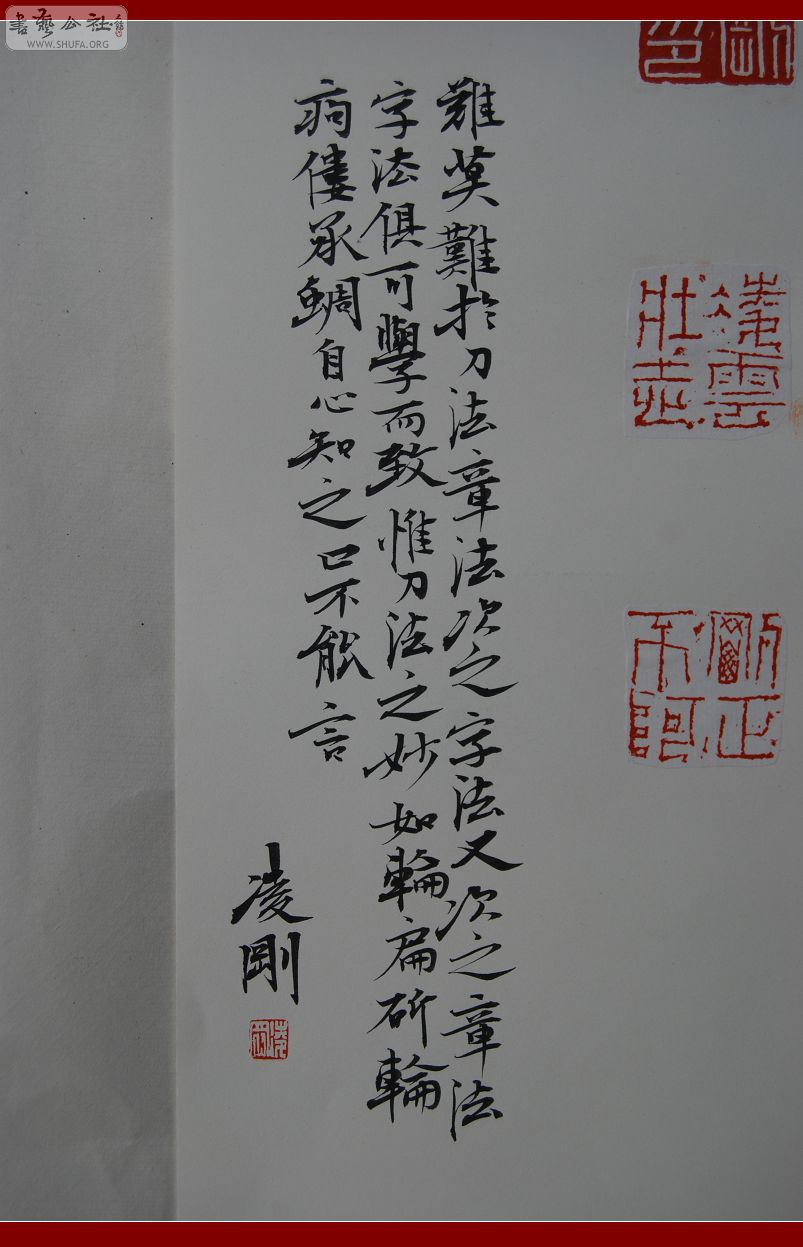 書藝公社
WWW.SHUFA.ORG
凌雲
壯志
剛正
不阿
難莫難於刀法章法次之字法又次之章法
字法俱可學而致惟刀法之妙如輪扁斫輪
痀僂承蜩自心知之口不能言
凌剛
凌剛